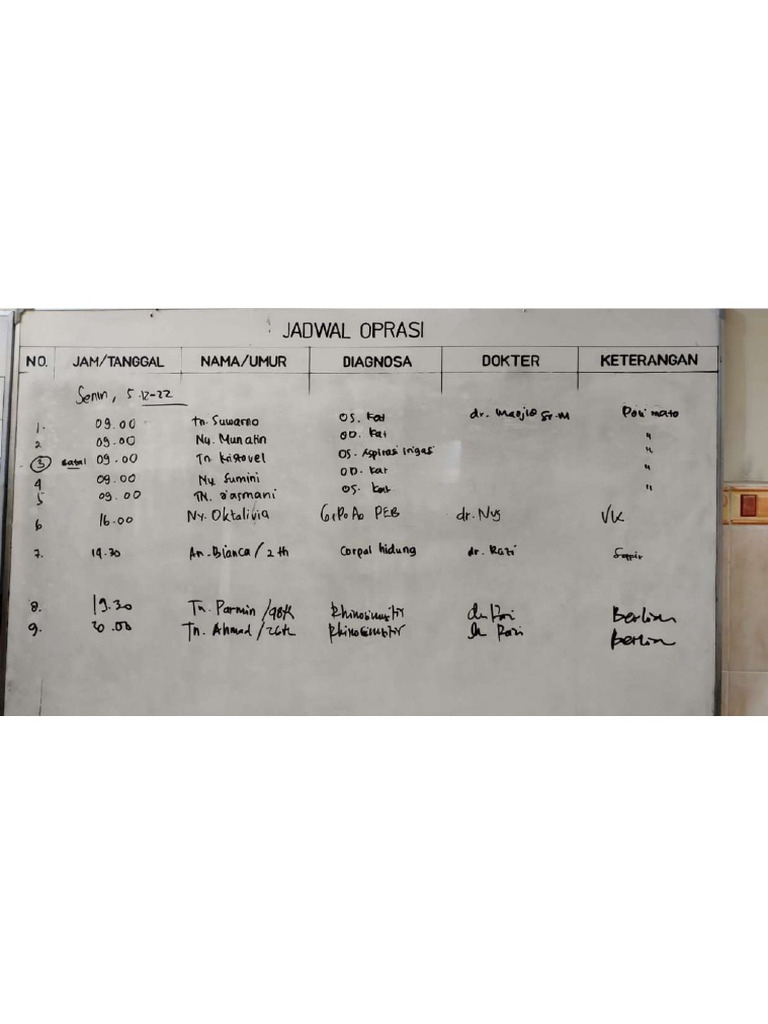 JADWAL OPRASI
NO. JAM/TANGGAL NAMA/UMUR DIAGNOSA DOKTER KETERANGAN
Senin, 5-12-22
1. 09.00 Tn. Suwarno OS. Kat dr. Sp.M Poli mata
2 09.00 Ny. Munatin OD. Kat "
3 Batal 09.00 Tn. Kristovel OS. Aspirasi irigasi "
4 09.00 Ny Sumini OD. Kat "
5 09.00 TN. OS. Kat "
6 16.00 Ny. Oktalivia G1P0A0 PEB dr. Nus VK
7. 19.30 An. Bianca / 2 th Corpal hidung dr. Razi
8. 19.30 Tn. Parmin / th dr Berlian
9. Tn. Ahmad / 26th dr Razi Berlian